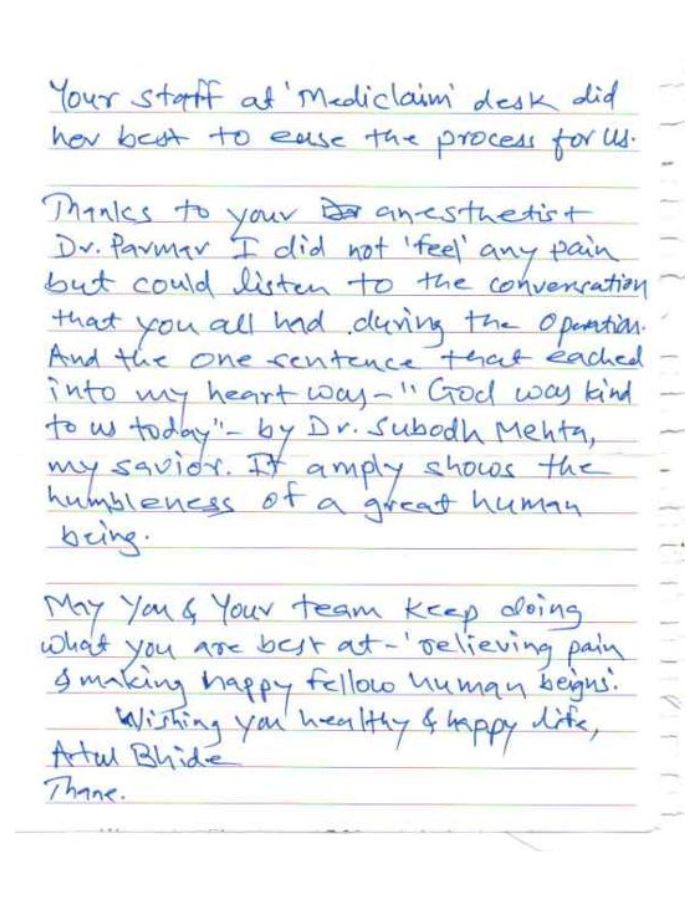 Your staff at 'Mediclaim' desk did
her best to ease the process for us.
Thanks to your anesthetist
Dr. Parmar I did not 'feel' any pain
but could listen to the convercation
that you all had during the operation.
And the one sentence that eached
into my heart was - "God was kind
to us today" - by Dr. Subodh Mehta,
my savior. It amply shows the
humbleness of a great human
being.
May You & Your team keep doing
what you are best at - 'relieving pain
& making happy fellow human beigns'.
Wishing you healthy & happy life,
Bhide
Thane.